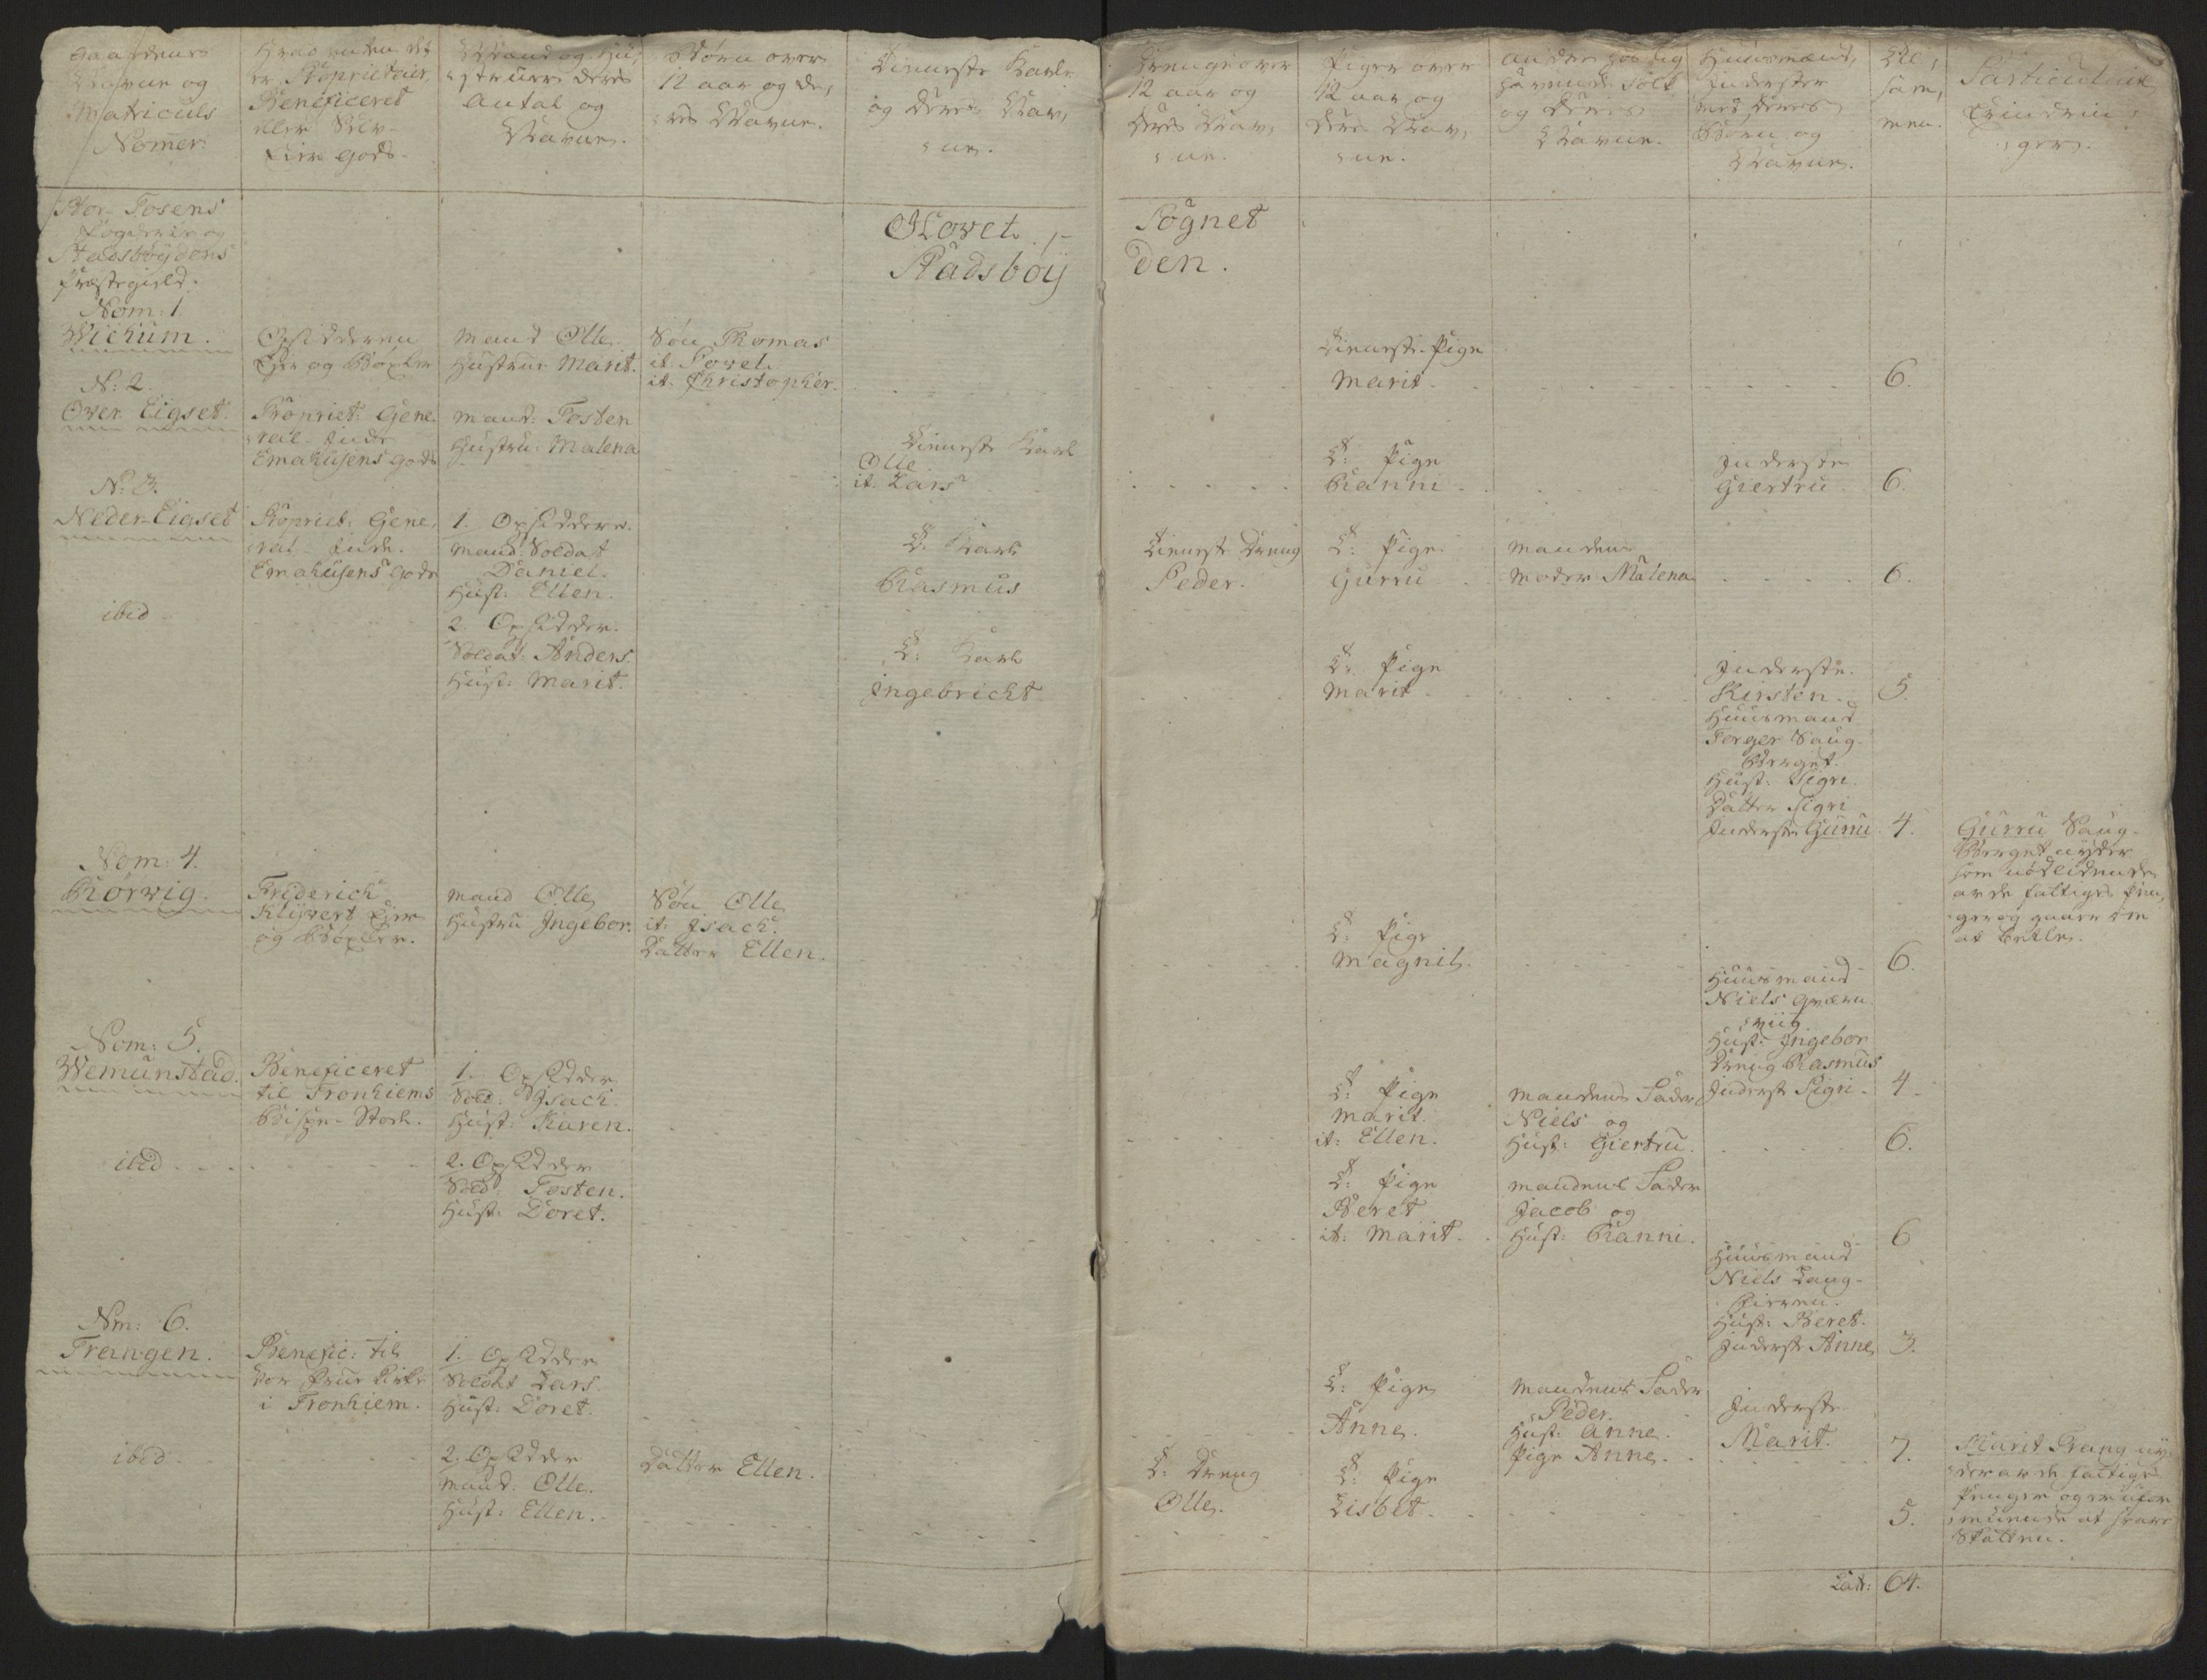 Gaardenes
Navne og
Matriculs
Nomer.
Hvad enten det
er Proprietair,
Beneficeret
eller
gods.
Mand og Hu,
struer deres
Antal og
Navne.
Børn over
12 aar og de,
res Navne.
Tieneste Karle
og deres Nav,
ne.
Drenge over
12 aar og
deres Nav,
ne.
Piger over
12 aar og
deres Nav,
ne.
Andre hos sig
havende Folk
og deres
Navne.
Huusmænd,
Inderster
med deres
Børn og
Navne.
Til,
sam,
men.
Particulair
Erindrin,
ger.
Stor- Fosens
Fogderie og
Stadsbøydens
Præstegield.
Hovet,-
Sognet
Stadsbøy
den.
Nom: 1.
Wichum.
Opsidderen
Eyer og Bøxler
Mand Olle.
Hustrue Marit.
Søn Thomas
it. Povel.
it. Christopher.
Tieneste Pige
Marit.
6.
N: 2.
Over Eigset.
Propriet: Gene
ral- Inde
Emahusens gods
Mand: Tosten
Hustru: Malena
Tieneste Karl
Olle
it. Lars
T: Pige
Ranni
Inderste
Giertru
6.
N: 3.
Neder-Eigset
Propriet: Gene,
ral- Inde.
Emahusens gods
1. Opsiddere.
Mand: Soldat
Daniel.
Hust: Ellen.
T. Karl
Rasmus
Tieneste Dreng
Peder.
T: Pige
Gurru
Mandens
Moder Malena
6.
ibid
2. Opsidder.
Soldat: Anders.
Hust: Marit.
T: Karl
Ingebricht
T: Pige
Marit
Inderste.
Kirsten.
5.
Huusmand
Torger Saug-
Berget.
Hust: Sigri.
Datter Sigri
Inderste Gurru
4.
Gurru Saug-
Berget nyder
som nødlidende
av de fattiges Pen,
ger og gaaer om
at betle.
Nom: 4.
Rørvig.
Friderich
Klyvert Eyer
og Bøxler.
Mand Olle
Hustru Ingebor.
Søn Olle
it: Isach.
Datter Ellen.
T: Pige
Magnil.
6.
Huusmand
Niels
viig
Hust: Ingebor
Dreng Rasmus
Inderste Sigri
4.
Nom: 5.
Wemunstad.
Beneficeret
til Tronhiems
Bispe- Stoel.
1. Opsidder
Sold: Isach.
Hust: Karen.
T: Pige
Marit
it: Ellen.
Mandens Fader
Niels og
Hust: Giertru.
6.
ibid
2. Opsidder
Sold: Tosten.
Hust: Doret.
T: Pige
Beret
it: Marit.
Mandens Fader
Jacob og
Hust: Ranni.
6
Huusmand
Niels Laug-
Hust: Beret.
Inderste Anne
3.
Nom: 6.
Trangen.
Benefic: til
Vor Frue Kirke
i Tronhiem.
1. Opsidder
Soldat Lars.
Hust: Doret.
T: Pige
Anne.
Mandens Fader
Peder.
Hust: Anne.
Pige Anne.
Inderste
Marit.
7.
Marit Trang ny,
der av de fattiges
Penger og er ufor
muende at svare
Skatten.
ibid
2. Opsidder
Mand: Olle.
Hust: Ellen.
Datter Ellen.
T: Dreng
Olle.
T: Pige
Lisbet
5.
Lat: 64.